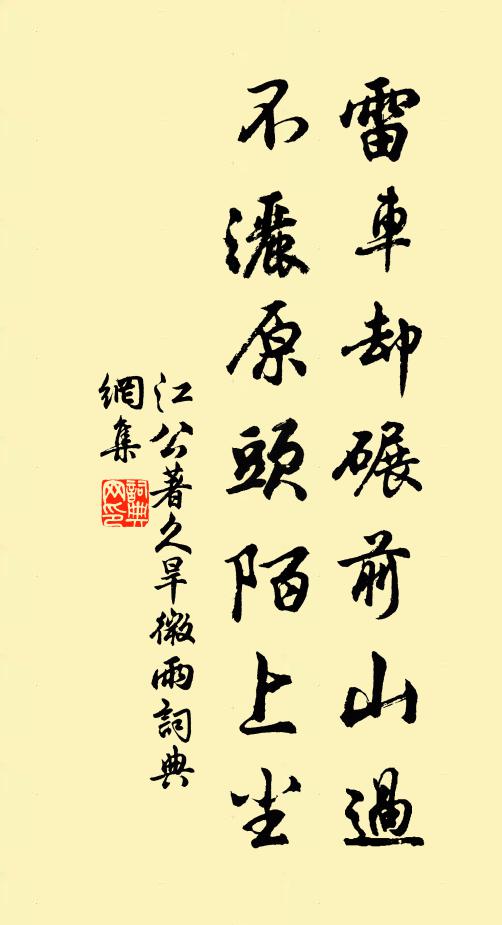 雷車却碾前山過
不灑原頭陌上尘
江公著久旱微雨詞典
網集
詞典網印